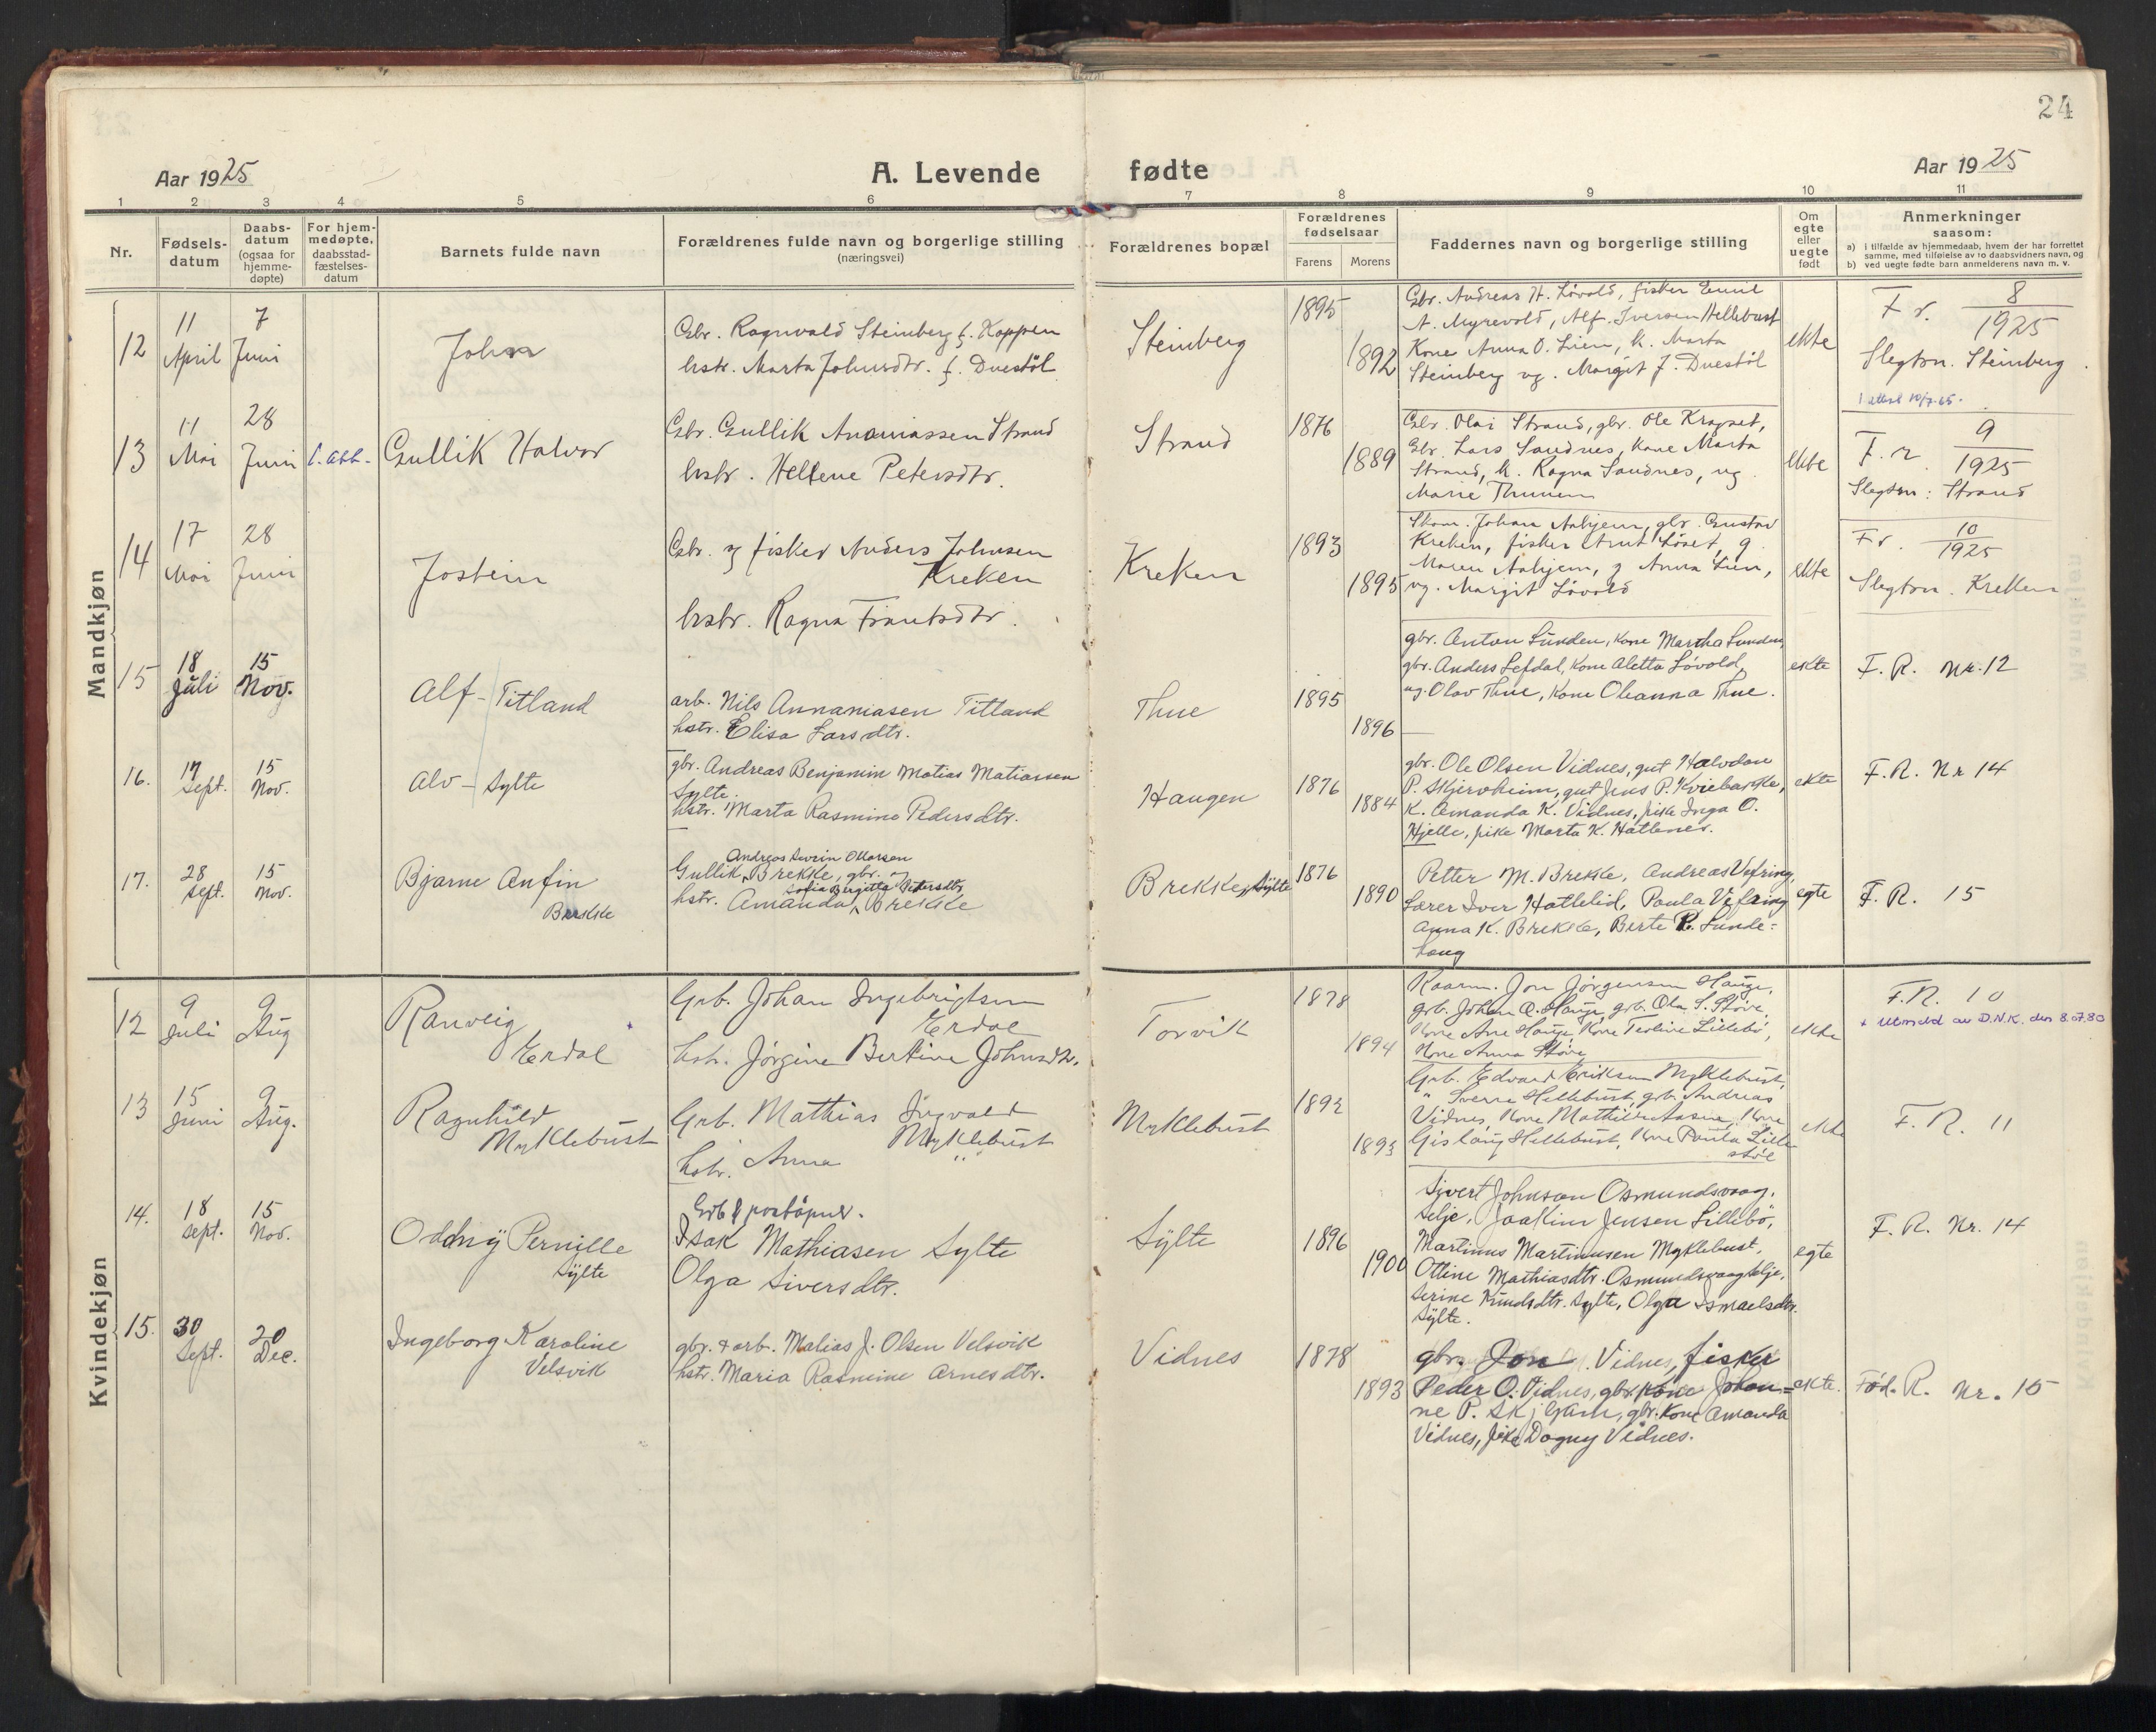 24
Aar 1925
A. Levende fødte
Aar 1925
1 2 3 4 5 6 7 8 9 10 11
Nr.
Fødsels-
datum
Daabs-
datum
(ogsaa for
hjemme-
døpte)
For hjem-
medøpte,
daabsstad-
fæstelses-
datum
Barnets fulde navn
Forældrenes fulde navn og borgerlige stilling
(næringsvei)
Forældrenes bopæl
Forældrenes
fødselsaar
Farens Morens
Faddernes navn og borgerlige stilling
Om
egte
eller
uegte
født
Anmerkninger
saasom:
a) i tilfælde av hjemmedaab, hvem der har forrettet
samme, med tilføielse av to daabsvidners navn, og
b) ved uegte fødte barn anmelderens navn m. v.
Mandkjøn
12
11
April
7
Juni
John
Gbr. Ragnvald Steinberg f. Koppen
hstr. Marta Johnsdtr. f. Duestöl
Steinberg
1895
1892
Gbr. Andreas H. Lövold, fisker Emil
A. Myrevold, Alf. Iversen Hellebust
Kone Anna O. Lien, k. Marta
Steinberg ug. Margit J. Duestöl
ekte
F r. 8
1925
Slegtsn. Steinberg
13
11
Mai
28
Juni
Gullik Halvor
Gbr. Gullik Ananiassen Strand
hstr. Hellene Petersdtr.
Strand
1876
1889
Gbr. Olai Strand, gbr. Ole Kragset,
Gbr. Lars Sandnes, Kone Marta
Strand, k. Ragna Sandnes, ug.
Marie Thunem
ekte
F. r. 9
1925
Slegtsn: Strand
14
17
Mai
28
Juni
Jostein
Gbr. og fisker Anders Johnsen
Kreken
hstr. Ragna Frantsdtr.
Kreken
1893
1895
Skom. Johan Aahjem, gbr. Gustav
Kreken, fisker Knut Löset, g.
Maren Aahjem, g. Anna Lien,
ug. Margit Lövold
ekte
Fr. 10
1925
Slegtsn. Kreken
15
18
Juli
15
Nov.
Alf - Titland
arb. Nils Annaniasen Titland
hstr. Elisa Larsdtr.
Thue
1895
1896
gbr. Anton Sunden, kone Martha Sunden,
gbr. Anders Lefdal, kone Aletta Lövold,
ug. Olav Thue, kone Oleanna Thue.
ekte
F. R. Nr. 12
16.
17
Sept.
15
Nov.
Alv - Sylte
gbr. Andreas Benjamin Matias Matiassen
Sylte.
hstr. Marta Rasmine Pedersdtr.
Haugen
1876
1884
gbr. Ole Olsen Vidnes, gut Halvdan
P. Skjervheim, gut Jens P. Kviebakke,
K. Amanda K. Vidnes, pike Inga O.
Hjelle, pike Marta K. Hatlenes.
ekte
F. R. Nr 14
17.
28
Sept.
15
Nov.
Bjarne Anfin
Brekke
Andreas Severin Ottarsen
Gullik Brekke, gbr. og
Sofia Birgitta Petersdtr.
hstr. Amanda Brekke
Brekke, Sylte
1876
1890
Petter M. Brekke, Andreas Vefring,
Lærer Iver Hatlelid, Paula Vefring
Anna K. Brekke, Berte R. Sunde-
haug
egte
F. R. 15
Kvindekjøn
12
9
Juli
9
Aug
Ranveig
Erdal
Grb. Johan Ingebrigtsen
Erdal
hstr. Jörgine Bertine Johnsdtr.
Torvik
1878
1894
Kaarm. Jon Jörgensen Hauge,
grb. Johan A. Hauge, grb. Ola S. Störe,
Kone Ane Hauge, Kone Teoline Lillebö,
Kone Anna Störe
ekte
F.R. 10
+ Utmeld av D.N.K. den 8.07.80
13
15
Juni
9
Aug.
Ragnhild
Myklebust
Grb. Mathias Ingvald
Myklebust
hstr. Anna "
Myklebust
1892
1893
Grb. Edvard Eriksen Myklebust,
" Sverre Hellebust, grb. Andreas
Vidnes, Kone Mathilde Aasen, Kone
Gislaug Hellebust, Kone Paula Lille
stöl
ekte
F. R. 11
14.
18
Sept.
15
Nov.
Oddny Pernille
Sylte
Grb & postöpner.
Isak Mathiasen Sylte
Olga Siversdtr.
Sylte
1896
1900
Sivert Johnson Osmundsvaag,
Selje, Joakim Jensen Lillebö,
Martinus Martinusen Myklebust,
Ottine Mathiasdtr. Osmundsvaag Selje,
Serine Knudsdtr. Sylte, Olga Ismaelsdtr.
Sylte.
egte
F. R. Nr. 14
15.
30
Sept.
20
Dec.
Ingeborg Karoline
Velsvik
gbr. + arb. Matias J. Olsen Velsvik
hstr. Maria Rasmine Arnesdtr.
Vidnes
1878
1893
gbr. Jon Vidnes, fisker
Peder O. Vidnes, gbr. kone Johan-
ne P. Skjegam, gbr. Kone Amanda
Vidnes, pike Dagny Vidnes.
ekte.
Fød. R. Nr. 15